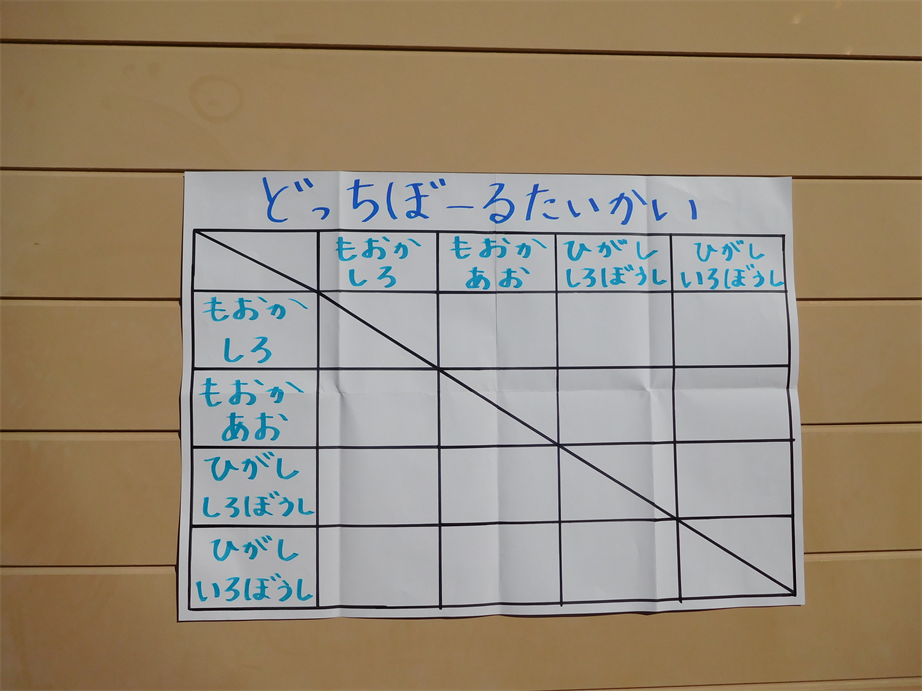 どっちぼーるたいかい
もおか
しろ
もおか
あお
ひがし
しろぼうし
ひがし
いろぼうし
もおか
しろ
もおか
あお
ひがし
しろぼうし
ひがし
いろぼうし